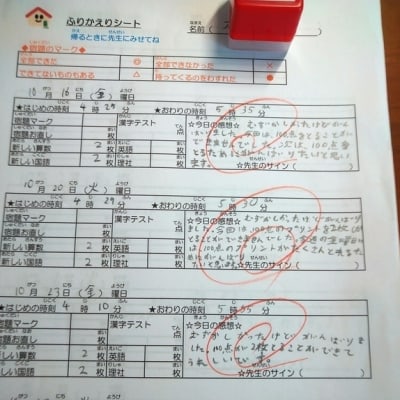 ふりかえりシート
帰るときに先生にみせてね
名前(
◆宿題のマーク◆
全部できた ◎ 全部できなかった ×
できてないものもある △ 持ってくるのをわすれた ●
10月16日(金)曜日
★はじめの時刻 4時29分 ★おわりの時刻 5時35分
宿題マーク 漢字テスト 点
宿題お直し 枚
新しい算数 2枚 英語 枚
新しい国語 2枚 理社 枚
☆今日の感想☆ むずかしかったけどがんばり
ました。今回は100点をとることが
できませんでした。次は、100点を
とるためにがんばりたいと思い
ます。 ☆先生のサイン(
10月20日(火)曜日
★はじめの時刻 4時29分 ★おわりの時刻 5時30分
宿題マーク 漢字テスト 点
宿題お直し 枚
新しい算数 2枚 英語 枚
新しい国語 2枚 理社 枚
☆今日の感想☆ むずかしかったけどがんばり
ました。今回は100点のプリントを2枚
とることができませんでした。
☆先生のサイン(
10月23日(金)曜日
★はじめの時刻 4時10分 ★おわりの時刻 5時35分
宿題マーク 漢字テスト 点
宿題お直し 枚
新しい算数 2枚 英語 枚
新しい国語 2枚 理社 枚
☆今日の感想☆
むずかしかったけどがんばりま
した。100点が2枚とることができて
うれしいです。
☆先生のサイン(